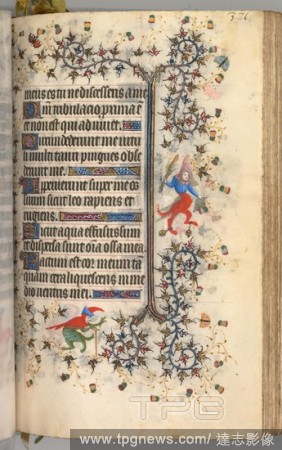 376
meus es tu ne discesseris a me
Qm tribulacio proxima ē
et non est qui adiuvet.
dederunt me vitu
li multi tauri pingues obse
derunt me.
Aperuerunt super me os
suum sicut leo rapiens et
rugiens.
Sicut aqua effusus sum
et dispersa sunt oīa ossa mea.
Factum est cor meum ta
quam cera liquescens in me
dio ventris mei.
TPG
www.tpgnews.com/達志影像